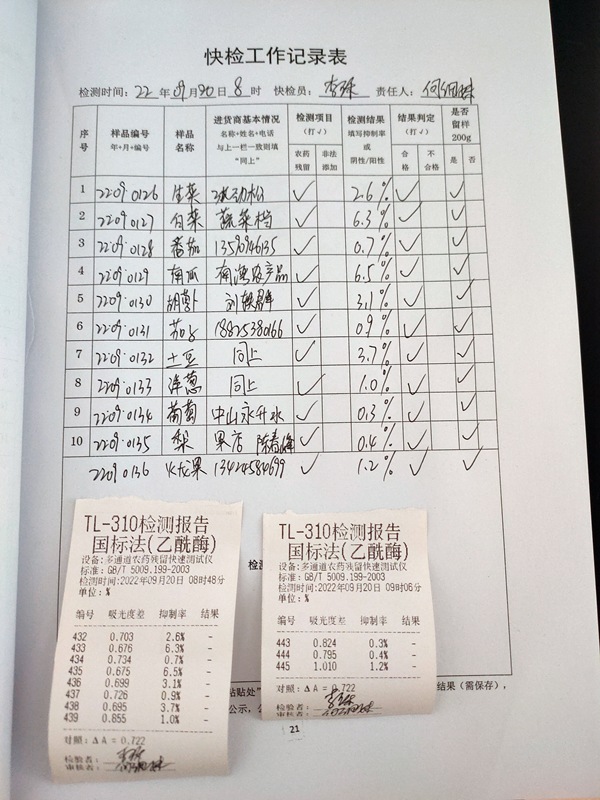 快检工作记录表
检测时间: 22 年 09 月 20 日 8 时 快检员: 责任人:
序号 样品编号 年+月+编号 样品名称 进货商基本情况 名称+姓名+电话 与上一栏一致则填 “同上” 检测项目 (打√) 检测结果 填写抑制率 或 阴性/阳性 结果判定 (打√) 是否留样 200g
农药残留 非法添加 合格 不合格 是 否
1 2209·0126 生菜 √ 2.6% √ √
2 2209·0127 白菜 蔬菜档 √ 6.3% √ √
3 2209·0128 番茄 √ 0.7% √ √
4 2209·0129 南瓜 农产品 √ 6.5% √ √
5 2209·0130 胡萝卜 √ 3.1% √ √
6 2209·0131 茄子 18825380166 √ 0.9% √ √
7 2209·0132 土豆 同上 √ 3.7% √ √
8 2209·0133 洋葱 同上 √ 1.0% √ √
9 2209·0134 葡萄 中山永升水 √ 0.3% √ √
10 2209·0135 梨 果店 √ 0.4% √ √
2209 0136 火龙果 13424584699 √ 1.2% √ √
TL-310检测报告
国标法(乙酰酶)
设备:多通道农药残留快速测试仪
标准: GB/T 5009.199-2003
检测时间:2022年09月20日 08时48分
单位: %
编号 吸光度差 抑制率 结果
432 0.703 2.6% -
433 0.676 6.3% -
434 0.734 0.7% -
435 0.675 6.5% -
436 0.699 3.1% -
437 0.726 0.9% -
438 0.695 3.7% -
439 0.855 1.0% -
对照: ΔA = 0.722
检验者:
审核者:
检
TL-310检测报告
国标法(乙酰酶)
设备:多通道农药残留快速测试仪
标准: GB/T 5009.199-2003
检测时间:2022年09月20日 09时06分
单位: %
编号 吸光度差 抑制率 结果
443 0.824 0.3% -
444 0.795 0.4% -
445 1.010 1.2% -
对照: ΔA = 0.722
检验者:
审核者:
粘贴处”
结果(需保存),
公示,
21